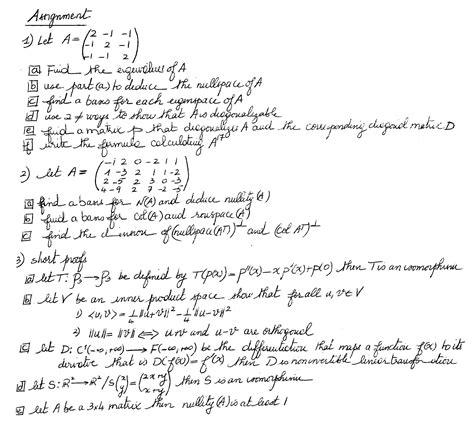 Assignment
1) Let A = ( 2 -1 -1
-1 2 -1
-1 -1 2 )
a Find the eigenvalues of A
b use part (a) to deduce the nullspace of A
c find a basis for each eigenspace of A
d use 2 ≠ ways to show that A is diagonalizable
e find a matrix P that diagonalizes A and the corresponding diagonal matrix D
f write the formula calculating
2) let A = ( -1 2 0 -2 1 1
1 -3 2 1 1 -2
2 -5 2 3 0 -3
4 -9 2 7 -2 -5 )
a find a basis for N(A) and deduce nullity(A)
b find a basis for col(A) and rowspace(A)
c find the dimension of (nullspace(Aᵀ))⊥ and (col Aᵀ)⊥
3) short proofs
a let T: P₃ → P₃ be defined by T(p(x)) = p''(x) - x p'(x) + p(0) then T is an isomorphism
b let V be an inner product space show that for all u, v ∈ V
1) <u,v> = 1/4 ||u+v||² - 1/4 ||u-v||²
2) ||u|| = ||v|| ⟺ u+v and u-v are orthogonal
c let D: C¹(-∞,+∞) → F(-∞,+∞) be the differentiation that maps a function f(x) to its
derivative that is D(f(x)) = f'(x) then D is noninvertible linear transformation
d let S: R² → R² / S(x y) = (2x+y x+y) then S is an isomorphism
e let A be a 3x4 matrix then nullity(A) is at least 1